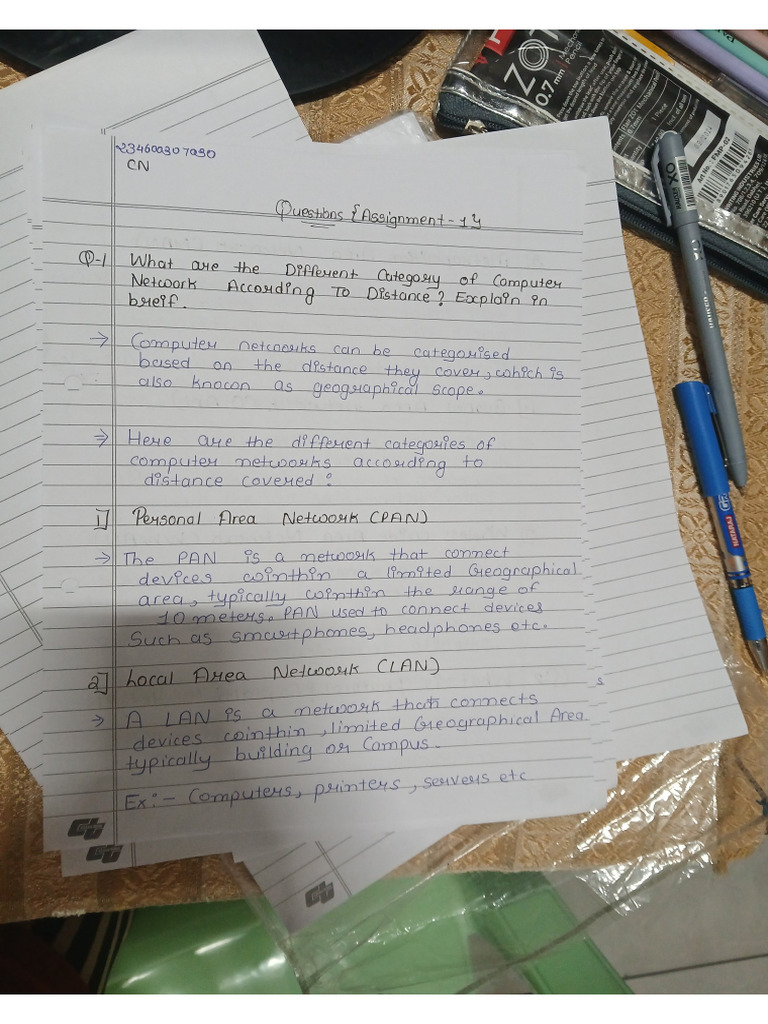 234600307030
CN
Questions {Assignment-1}
Q-1 What are the Different Category of Computer
Network According To Distance? Explain in
breif.
→ Computer networks can be categorised
based on the distance they cover, which is
also known as geographical scope.
⇒ Here are the different categories of
computer networks according to
distance covered:
1] Personal Area Network (PAN)
→ The PAN is a network that connect
devices winthin a limited Geographical
area, typically winthin the range of
10 meters. PAN used to connect devices
Such as smartphones, headphones etc.
2] Local Area Network (LAN)
→ A LAN is a network that connects
devices winthin, limited Geographical Area
typically building or Campus.
Ex:- Computers, printers, servers etc
s
ZOT
0.7 mm
Mechanical
Pencil
1 Piece
Art No. : FMP-02
OX
NATARAJ